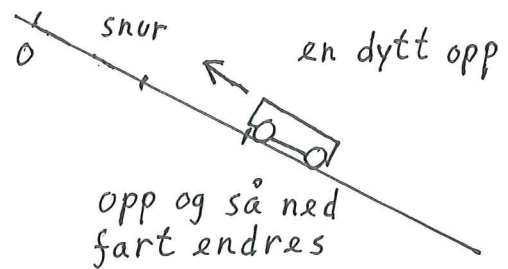 snur
en dytt opp
0
opp og så ned
fart endres